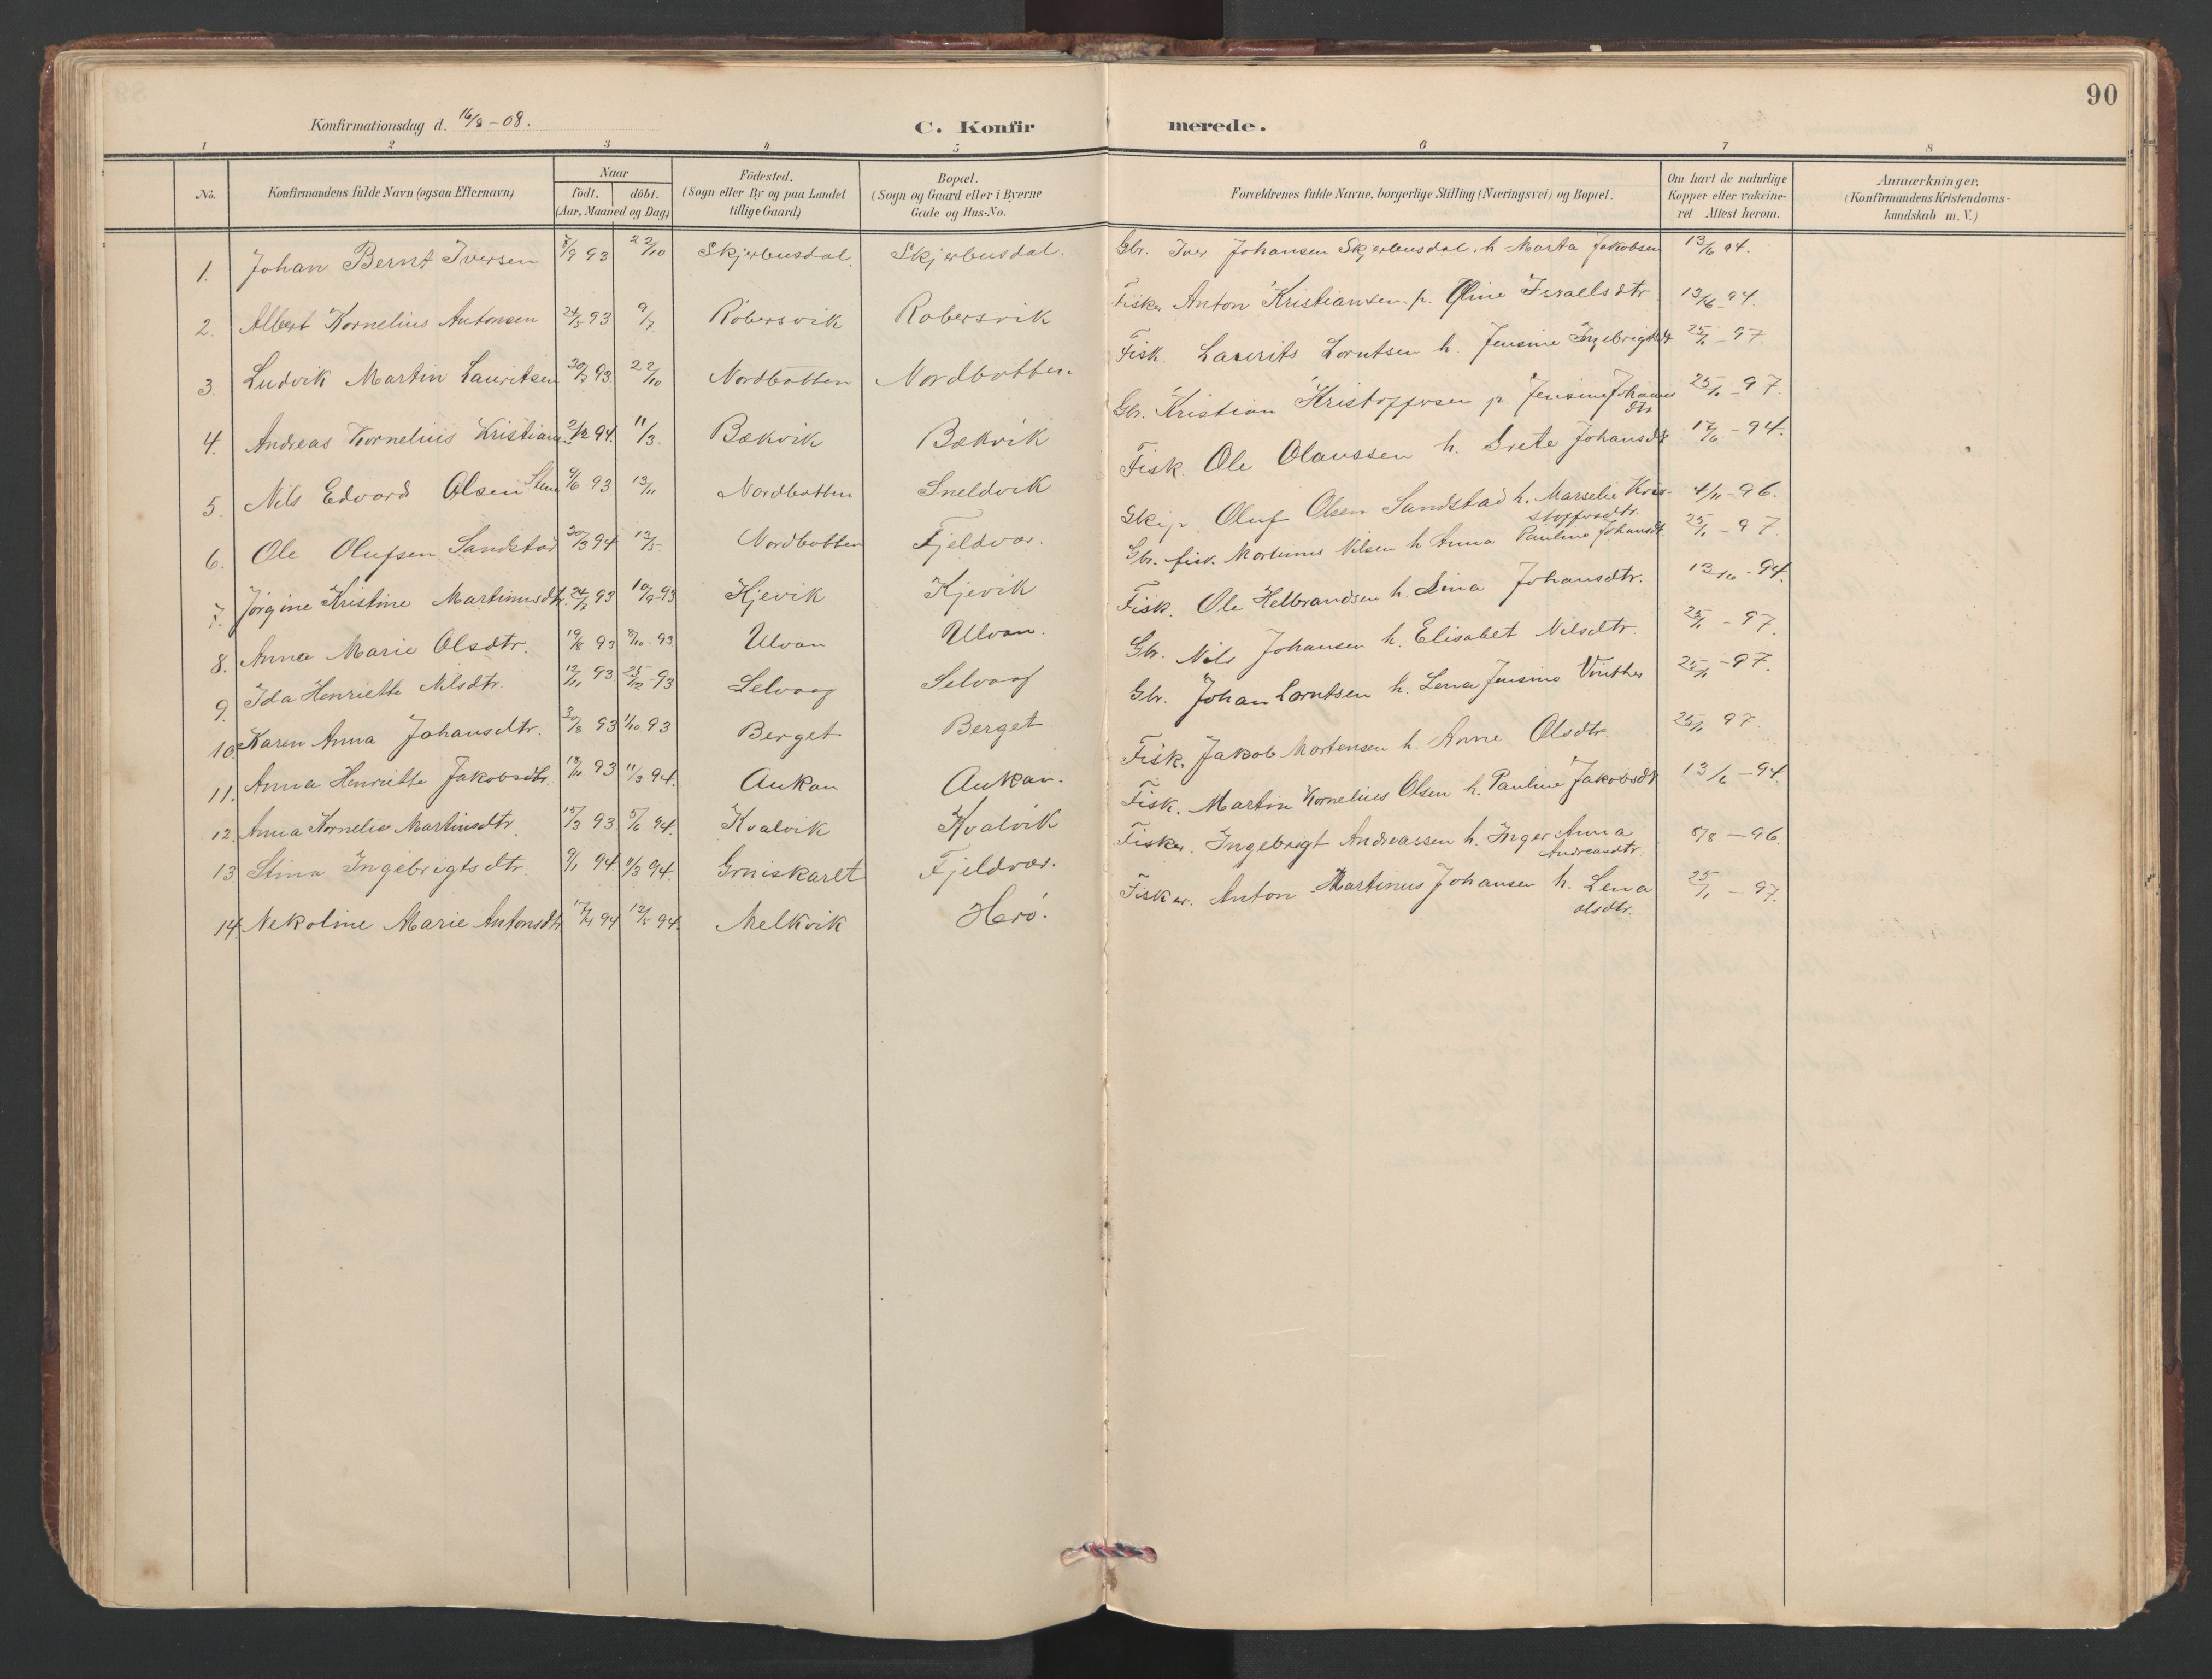 90
Konfirmationsdag d. 16/8 – 08.
C. Konfirmerede.
1 2 3 4 5 6 7 8
No. Konfirmandens fulde Navn (ogsaa Efternavn) Naar födt. döbt. (Aar, Maaned og Dag) Födested. (Sogn eller By og paa Landet tillige Gaard) Bopæl. (Sogn og Gaard eller i Byerne Gade og Hus-No. Forældrenes fulde Navne, borgerlige Stilling (Næringsvei) og Bopæl. Om havt de naturlige Kopper eller vakcineret Attest herom. Anmærkninger, (Konfirmandens Kristendomskundskab m. V.)
1. Johan Bernt Iversen 7/9 93 22/10 Skjerbusdal. Skjerbusdal. Gbr. Iver Johansen Skjerbusdal. h Marta Jakobsen 13/6 94.
2. Albert Kornelius Antonsen 24/5 93 9/7 Robersvik Robersvik Fisker Anton Kristiansen p. Oline Israelsdtr 13/6 – 94.
3. Ludvik Martin Lauritsen 30/7 93 22/10 Nordbotten Nordbotten Fisk. Laurits Lorntsen h. Jensine Ingebrigtsdt 25/1 – 97
4. Andreas Kornelius Kristiansen 2/2 94. 11/3. Bækvik Bækvik Gbr. Kristian Kristoffersen p. Jensine Johannesdtr 25/1 – 97.
5. Nils Edvard Olsen 9/6 93 12/11 Nordbotten Sneldvik Fisk. Ole Olaussen h. Grete Johansdt 17/6 – 94.
6. Ole Olufsen Sandstad 30/3 94 13/5. Nordbotten Fjeldvær. Skip. Oluf Olsen Sandstad h. Marselie Kristoffersdtr. 4/11 – 96.
7. Jörgine Kristine Martinusdtr. 24/7 93 10/9 – 93 Kjevik Kjevik Gbr. fisk. Martinus Nilsen h Anna Pauline Johansdt. 25/1 – 97
8. Anna Marie Olsdtr. 19/8 93 8/10 – 93 Ulvan Ulvan. Fisk. Ole Helbrandsen h. Lina Johansdtr. 13/6 – 94.
9. Ida Henriette Nilsdtr. 12/11 93 25/12 – 93 Selvaag Selvaag Gbr. Nils Johansen h. Elisabet Nilsdtr. 25/1 – 97.
10. Karen Anna Johansdtr. 30/8 93 1/10 93 Berget Berget Gbr. Johan Lorntsen h. Lena Jensine Vinther 25/1 – 97.
11. Anna Henriette Jakobsdtr. 93 11/3 94. Aukan Aukan. Fisk. Jakob Mortensen h. Anne Olsdtr. 25/1 97.
12. Anna Kornelie Martinsdtr. 15/3 93 5/6 94. Kvalvik Kvalvik Fisk. Martin Kornelius Olsen h. Pauline Jakobsdt 13/6 – 94.
13 Stina Ingebrigtsdtr. 9/1 94. 11/3 94. Grniskaret Fjeldvær. Fisker. Ingebrigt Andreassen h. Inger Anna Andreasdtr. 8/8 – 96
14. Nekoline Marie Antonsdtr. 17/4 94 12/5 94. Melkvik Herö. Fisker. Anton Martinus Johansen h. Lena Olsdtr. 25/1 – 97.